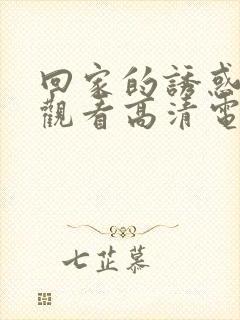 回家的誘惑
觀看高清電
七芷慕